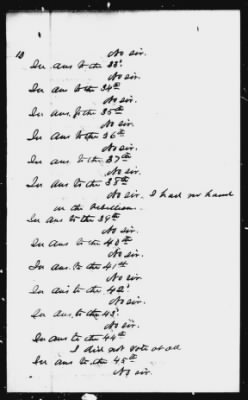 10 No sir.
In ans to the 33d.
No sir.
In ans to the 34th
No sir.
In ans. to the 35th
No sir.
In ans to the 36th
No sir.
In ans. to the 37th
No sir.
In ans to the 38th
No sir. I had no hand
in the rebellion.
In ans to the 39th
No sir.
In ans to the 40th
No sir.
In ans. to the 41st
No sir
In ans to the 42d.
No sir.
In ans. to the 43d.
No sir.
In ans to the 44th
I did not vote at all
In ans to the 45th
No sir.